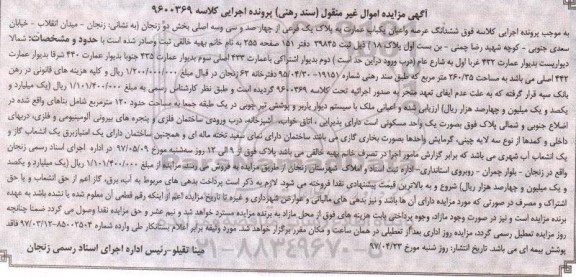 آگهی مزایده اموال غیر منقول (سند رهنی) پرونده اجرایی کلاسه ۹۶۰۰۳۶۹
به موجب پرونده اجرایی کلاسه فوق ششدانگ عرصه واعیان یکباب عمارت به پلاک یک فرعی از چهارصد و سی وسه اصلی بخش دو زنجان (به نشانی: زنجان - میدان انقلاب - خیابان
سعدی جنوبی - کوچه شهید رضا چمنی - بن بست اول پلاک ۱۸) ذیل ثبت ۲۹۸۳۵ دفتر ۱۵۱ صفحه ۲۵۵ به نام خانم بهیه خالقی ثبت وصادر شده است با حدود و مشخصات: شمالا
دیواریست بدیوار عمارت ۴۳۲ غربا اول به شارع عام (درب ورود دراین حد است) دوم بدیوار اشتراکی باعمارت ۴۳۳ اصلی سوم بدیوار عمارت ۴۳۵ جنوبا بدیوار عمارت ۴۴۰ شرقا بدیوار عمارت
۴۴۲ اصلی می باشد به مساحت ۲۶۰/۳۵ متر مربع که طبق سند رهنی شماره (۱۹۱۵) ۹۵/۰۴/۳۰ دفترخانه ۶۲ زنجان در قبال مبلغ ۱/۲۰۰/۰۰۰/۰۰۰ ریال و کلیه هزینه های قانونی در رهن
بانک سپه قرار گرفته که به علت عدم ایفای تعهد منجر به صدور اجرائیه تحت کلاسه ۹۶۰۰۳۶۹ گردیده است و طبق نظر کارشناس رسمی به مبلغ ۱/۱۰۱/۴۰۰/۰۰۰ ریال (یک میلیارد و
یکصد و یک میلیون و چهارصد هزار ریال) ارزیابی شده و اعیانی ملک با سیستم دیوار باربر و پوشش تیرچوبی در یک طبقه جمعا به مساحت حدود ۱۲۰ مترمربع شامل بناهای واقع شده در
اضلاع جنوبی و شمالی پلاک فوق بصورت یک واحد مسکونی است دارای پذیرایی، اتاق خواب، آشپزخانه، درب ورودی ساختمان فلزی و پنجره های بیرونی آلومینیومی و فلزی، دربهای
داخلی و کمدها از نوع سه لایه چینی، گرمایش واحدها بصورت بخاری گازی می باشد ساختمان دارای نمای سفید تخته ماله ای و همچنین ساختمان دارای یک امتیازبرق یک انشعاب گاز و
یک انشعاب آب شهری می باشد که برابر گزارش مامور اجرا در تصرف خانم بهیه خالقی می باشد پلاک فوق از ۹ الی ۱۲ روز سه شنبه مورخ ۹۷/۰۵/۰۹ در اداره اجرای اسناد رسمی زنجان
واقع در زنجان - بلوار چمران - روبروی استانداری - اداره ثبت اسناد و املاک شهرستان زنجان از طریق مزایده به فروش می رسد مزایده از مبلغ ۱/۱۰۱/۴۰۰/۰۰۰ ریال (یک میلیارد و یکصد
و یک میلیون و چهارصد هزار ریال) شروع و به بالاترین قیمت پیشنهادی نقدا فروخته می شود. لازم به ذکر است پرداخت بدهی های مربوط به آب، برق، گاز اعم از حق انشعاب و یا حق
اشتراک و مصرف در صورتی که مورد مزایده دارای آن ها باشد و نیز بدهی های مالیاتی و عوارض شهرداری و غیره تا تاریخ مزایده اعم از اینکه رقم قطعی آن معلوم شده یا نشده باشد به عهده
برنده مزایده است و نیز در صورت وجود مازاد، وجوه پرداختی بابت هزینه های فوق از محل مازاد به برنده مزایده مسترد خواهد شد و نیم عشر و حق مزایده نقدا وصول می گردد ضمنا چنانچه
روز مزایده تعطیل رسمی گردد، مزایده روز اداری بعداز تعطیلی در همان ساعت و مکان مقرر برگزار خواهد شد. مورد وثیقه برابر اعلام بستانکار طی وارده شماره ۸۵۰۰۳۵۰۳-۹۷/۰۳/۱۲ فاقد
پوشش بیمه ای می باشد. تاریخ انتشار: روز شنبه مورخ ۹۷/۰۴/۲۳
مینا تقیلو - رئیس اداره اجرای اسناد رسمی زنجان
۰۲۱-۸۸۳۴۹۶۷۰